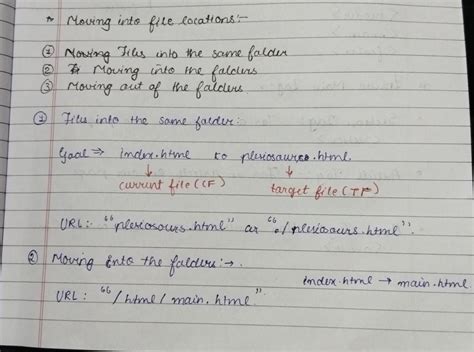 * Moving into file locations:-
① Moving Files into the same falder
② Moving into the falders
③ Moving out of the falders
① Files into the same falder:
Goal ⇒ index.html to plesiosaurs.html.
↓ ↓
current file (CF) target file (TF)
URL: "plesiosours.html" or "./plesiosaurs.html".
② Moving Into the falders:→.
index.html → main.html
URL: "/html/main.html".